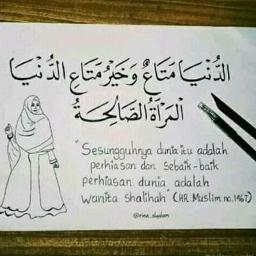 الدُّنْيَا مَتَاعٌ وَخَيْرُ مَتَاعِ الدُّنْيَا
الْمَرْأَةُ الصَّالِحَةُ
"Sesungguhnya dunia itu adalah
perhiasan dan sebaik-baik
perhiasan dunia adalah
wanita shalihah" (HR. Muslim no. 1467)